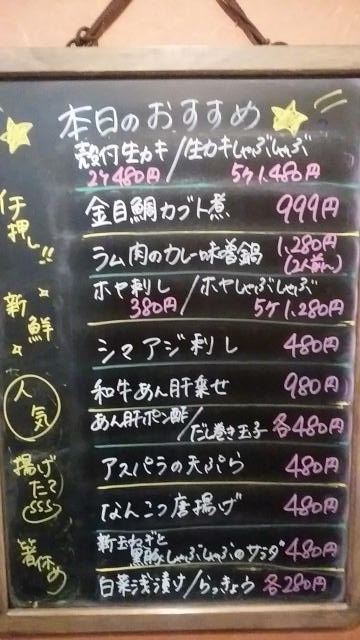 本日のおすすめ
殻付生カキ/生カキしゃぶしゃぶ
2ケ480円 5ケ1,480円
金目鯛カブト煮 999円
ラム肉のカレー味噌鍋 1,280円
(2人前〜)
ホヤ刺し/ホヤしゃぶしゃぶ
380円 5ケ1,280円
シマアジ刺し 480円
和牛あん肝乗せ 980円
あん肝ポン酢/だし巻き玉子 各480円
アスパラの天ぷら 480円
なんこつ唐揚げ 480円
新玉ねぎと
黒豚しゃぶしゃぶのサラダ 480円
白菜浅漬け/らっきょう 各280円
イチ
押し!!
新
鮮
人
気
揚げ
たて
SSS
箸休め